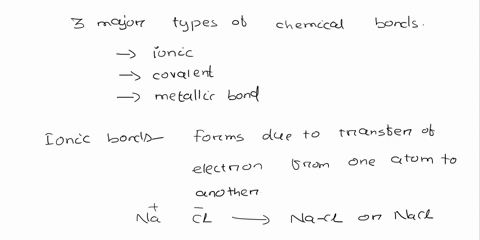 3 major types of chemical bonds.
→ ionic
→ covalent
→ metallic bond
Ionic bonds — forms due to transfer of
electron from one atom to
another
Na⁺ Cl⁻ → Na-Cl or NaCl